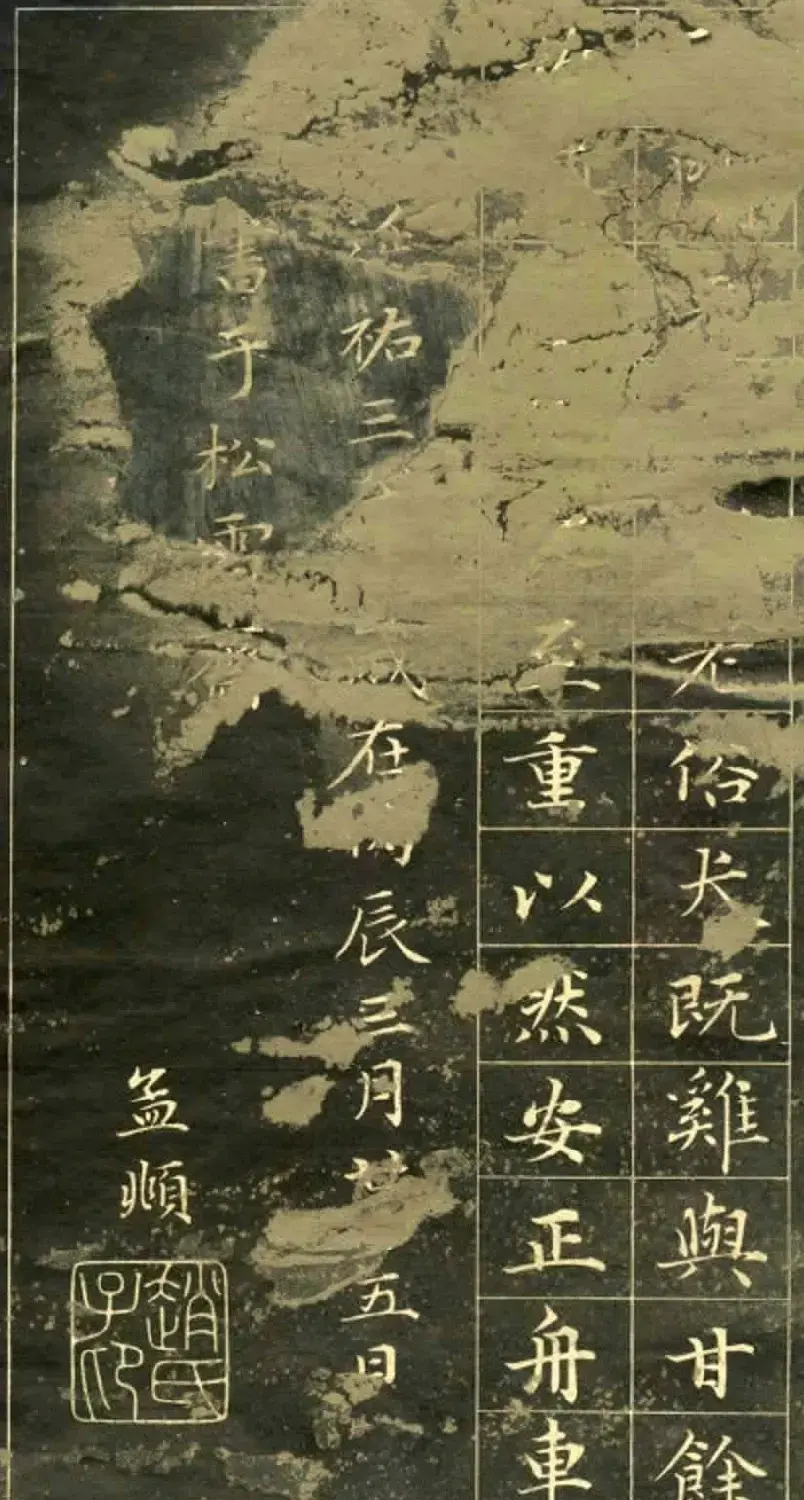 不俗犬既雞與甘餘
至重以然安正舟車
祐三歲在丙辰三月廿五日
書于松雪齋
孟頫
趙氏子昂